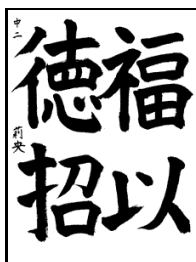 福以
徳招
中二 莉央